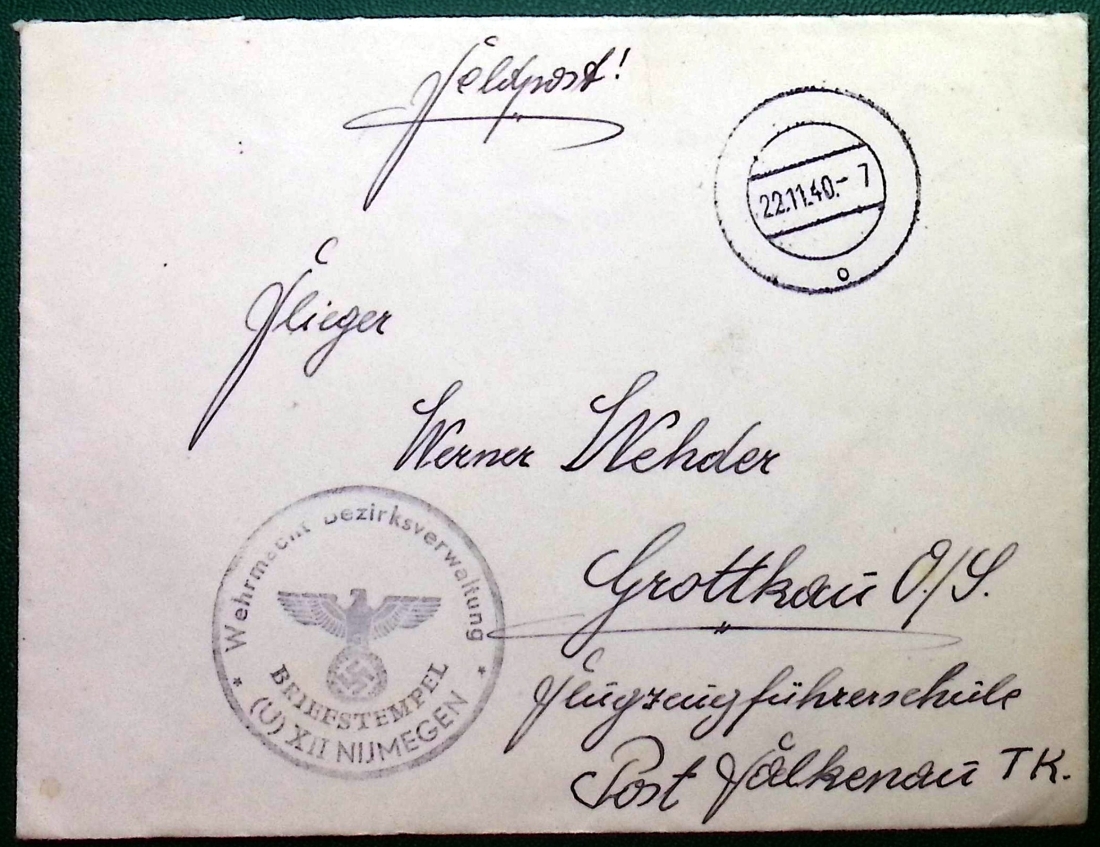 Feldpost!
22.11.40.- 7
o
Flieger
Werner Wehder
Grottkau O./S.
Flugzeugführerschule
Post Falkenau TK.
* Wehrmacht Bezirksverwaltung *
BRIEFSTEMPEL
(U) XII NIJMEGEN